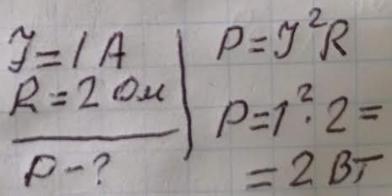 I = 1 A
R = 2 Ом
P - ?
P = I²R
P = 1² · 2 =
= 2 Вт